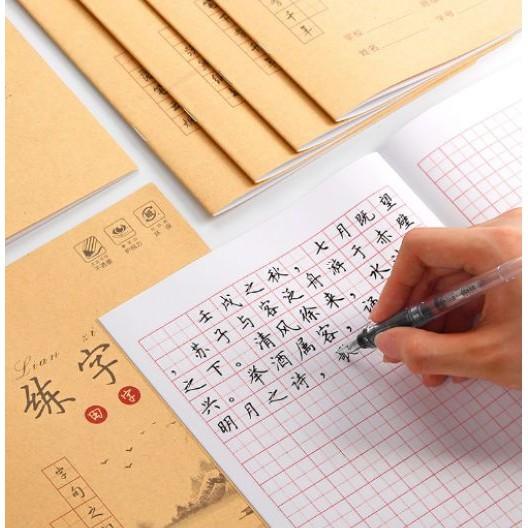 壬戌之秋，七月既望
，苏子与客泛舟游于赤壁
之下。清风徐来，水
兴。举酒属客，诵
明月之诗，
Lian zi
练字
田字
字句之
护视力
学校
姓名
千年